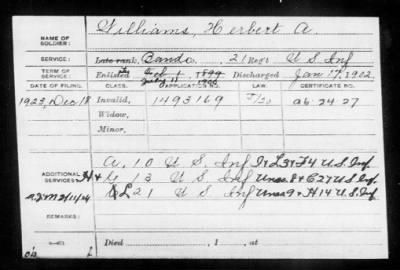 Williams, Herbert A.
NAME OF SOLDIER:
SERVICE: Late rank, Band Co., 21 Reg't U S Inf
TERM OF SERVICE: Enlisted Feb 1, 1899 Discharged Jan 17, 1902.
July 11 1900
DATE OF FILING. CLASS. APPLICATION NO. LAW. CERTIFICATE NO.
1923, Dec 18 Invalid, 1493169 A6-24-27
Widow,
Minor,
A, 10 U S Inf I & L 3 & F 4 U.S. Inf.
ADDITIONAL SERVICES: H & G 13 U S Inf Unas. 8 & C 27 U.S. Inf.
L 21 U S Inf Unas 9 & H 14 U.S. Inf.
REMARKS:
Died , 1 , at